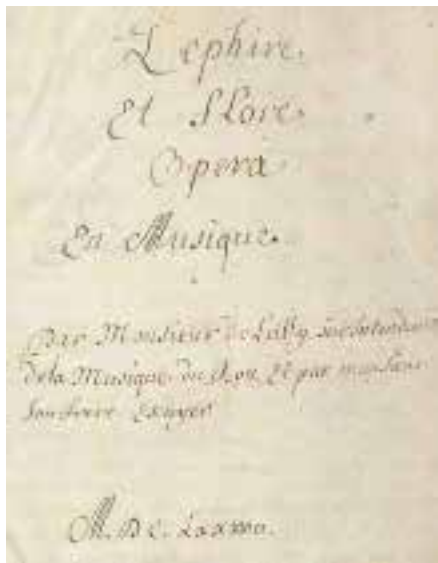 Zephire
Et Flore
Opera
En Musique.
Par Monsieur de Lully surintendant
de la Musique du Roy Et par monsieur
son frere Escuyer
M. DC. Lxxxx